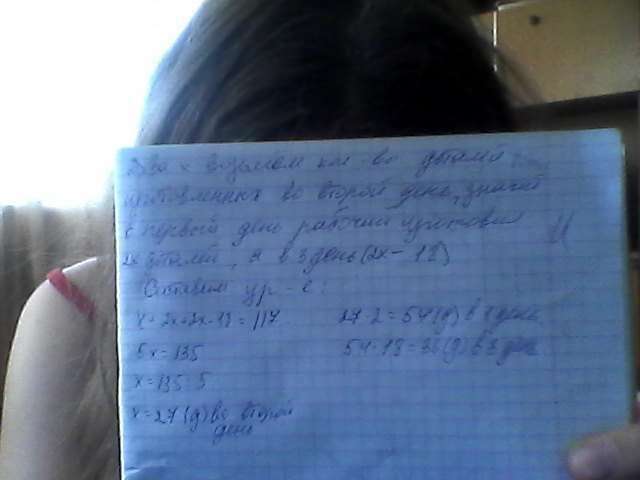 За x возьмем кол-во деталей
изготовленных во второй день, значит
в первый день рабочий изготовил
2x деталей, а в 3 день (2x - 18)
Составим ур-е:
x + 2x + 2x - 18 = 117
5x = 135
x = 135 : 5
x = 27 (д) во второй
день
27 · 2 = 54 (д) в 1 день
54 - 18 = 36 (д) в 3 день